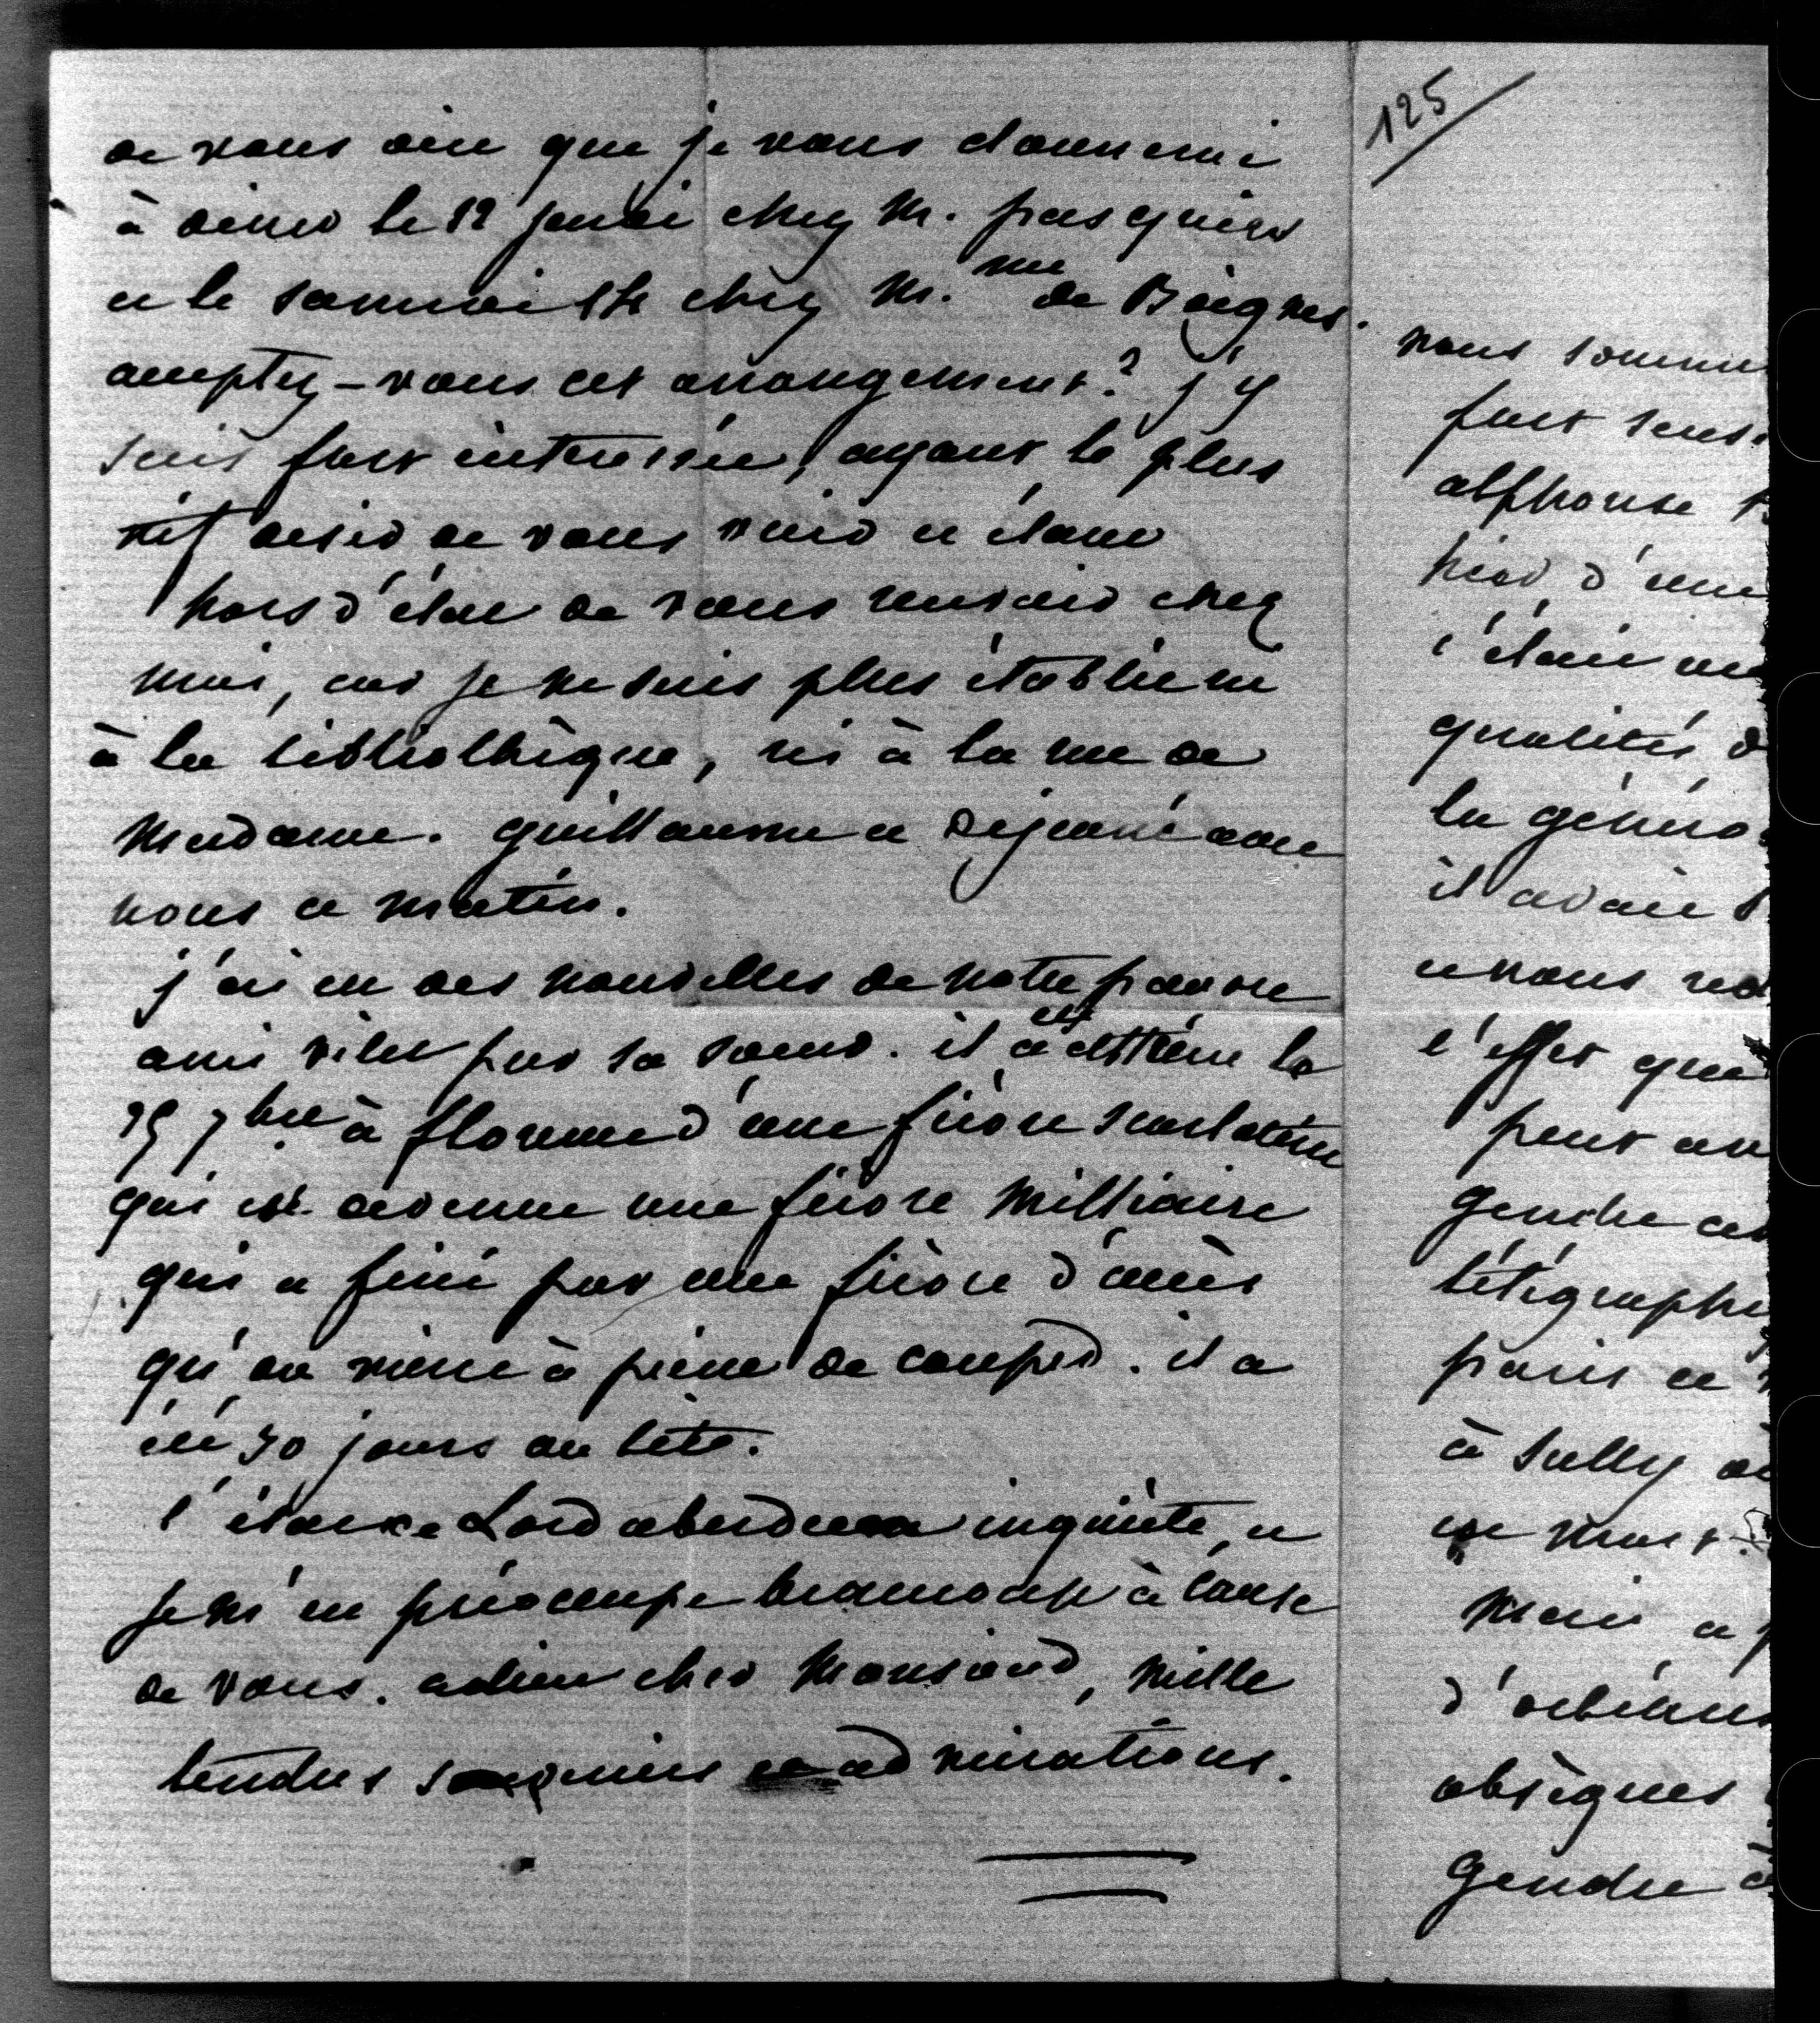 de vous dire que je vous donnerai
à diner le 12 jeudi chez M. pasquier
et le samedi 14 chez M.me de Boignes.
acceptez-vous cet arrangement? j'y
suis fort intéressée, ayant le plus
vif desir de vous voir et étant
hors d'état de vous recevoir chez
moi, car je ne suis plus établie ni
à la bibliothèque, ni à la rue de
Madame. guillaume a déjeuné avec
nous ce matin.
j'ai eu des nouvelles de notre pauvre
ami vitet par sa soeur. il a été atteint le
25 7bre à florence d'une fièvre scarlatine
qui est devenue une fièvre milliaire
qui a fini par une fièvre d'accès
qu'on vient à peine de couper. il a
été 30 jours au lit.
l'état de Lord aberdeen inquiète, et
je m'en préoccupe beaucoup à cause
de vous. adieu cher Monsieur, mille
tendres et admirations.
125
nous sommes
fort
alphonse
hier d'une
c'était
qualités d
la généro
il avait
et nous
l'effet que
peut
gendre
télégraphi
paris
à Sully
est mort.
Mari
d'orléans
obsèques
gendre